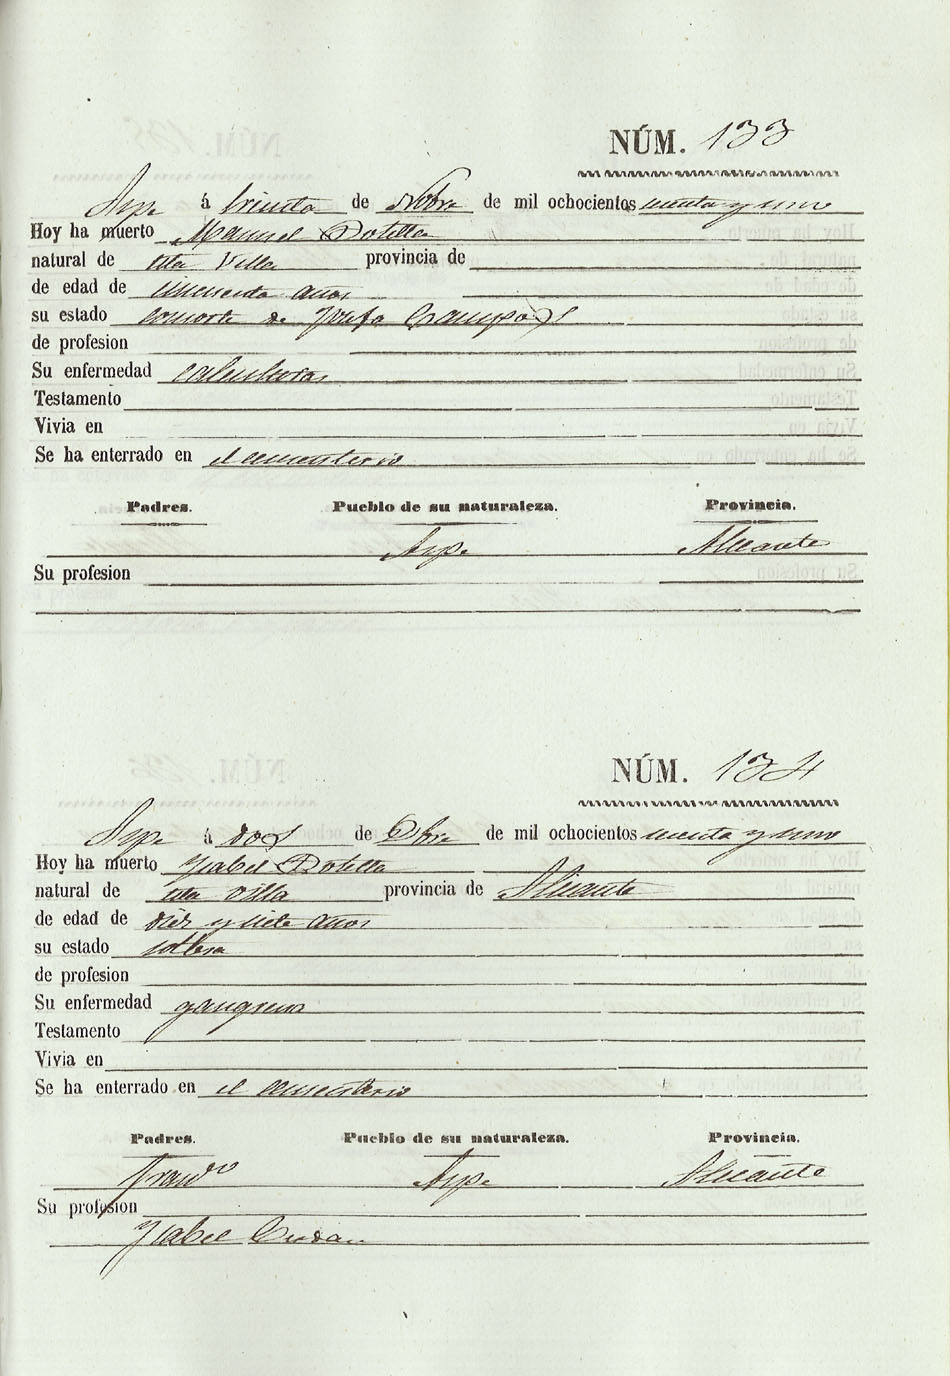 NÚM. 133
Aspe á treinta de Nobre de mil ochocientos y uno
Hoy ha muerto Manuel Botella
natural de esta Villa provincia de
de edad de cincuenta años
su estado consorte de Josefa
de profesion
Su enfermedad calenturas
Testamento
Vivia en
Se ha enterrado en el cementerio
Padres. Pueblo de su naturaleza. Provincia.
Aspe Alicante
Su profesion
NÚM. 134
Aspe á dos de Dbre de mil ochocientos y uno
Hoy ha muerto Ysabel Botella
natural de esta villa provincia de Alicante
de edad de diez y siete años
su estado soltera
de profesion
Su enfermedad gangrena
Testamento
Vivia en
Se ha enterrado en el cementerio
Padres. Pueblo de su naturaleza. Provincia.
Franco Aspe Alicante
Su profesion
Ysabel